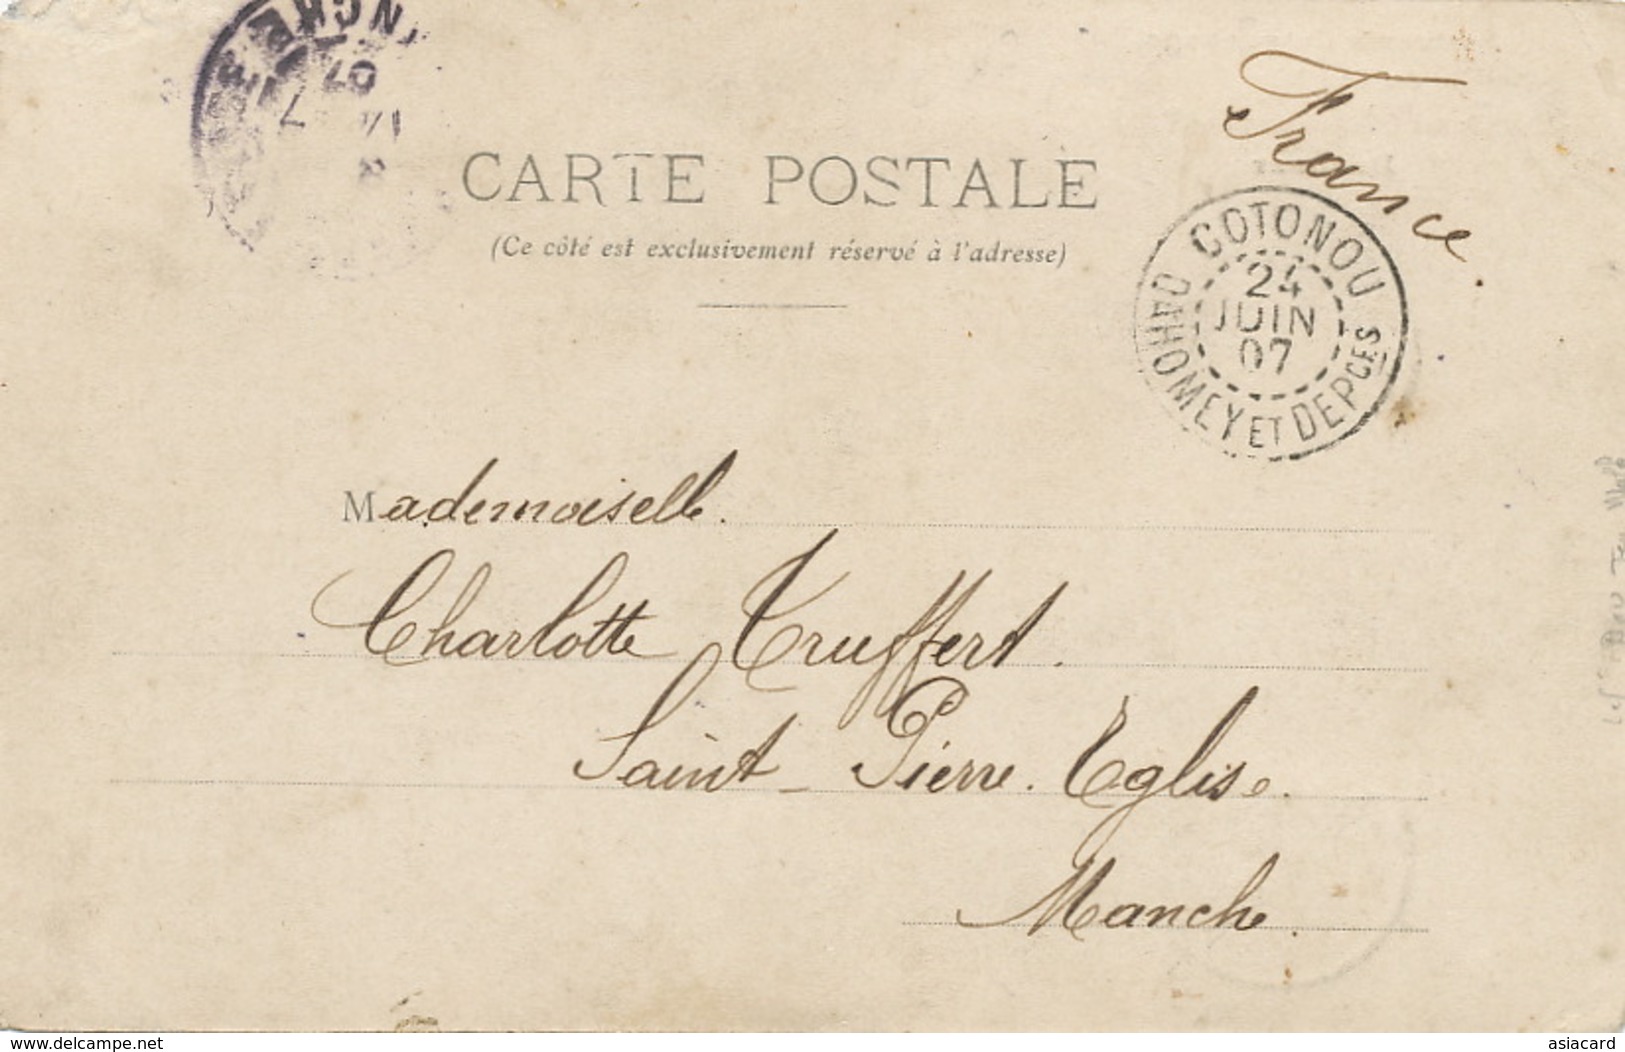 NCHE
07
CARTE POSTALE
(Ce côté est exclusivement réservé à l'adresse)
France
COTONOU
24
JUIN
07
DAHOMEY ET DEPCES
Mademoiselle.
Charlotte Truffert.
Saint-Pierre. Eglise.
Manche.
www.delcampe.net
asiacard